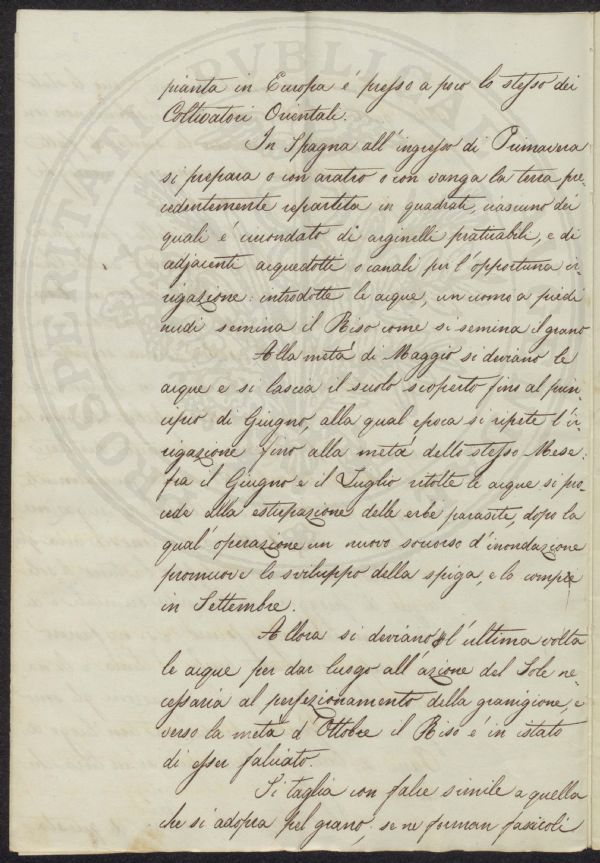 pianta in Europa é presso a poco lo stesso dei
Coltivatori Orientali.
In Spagna all'ingresso di Primavera
si prepara o con aratro o con vanga la terra pre-
cedentemente repartita in quadrati, ciascuno dei
quali é circondato di arginelli praticabili, e di
adjacenti acquedotti o canali per l'opportuna ir-
rigazione: introdotte le acque, un uomo a piedi
nudi semina il Riso come si semina il grano
Alla metá di Maggio si deviano le
acque e si lascia il suolo scoperto fino al prin-
cipio di Giugno, alla qual epoca si ripete l'ir-
rigazione fino alla metá dello stesso Mese:
fra il Giugno e il Luglio ritolte le acque si pro-
cede alla estirpazione delle erbe parasite, dopo la
qual'operazione un nuovo soccorso d'inondazione
promuove lo sviluppo della spiga, e lo compie
in Settembre.
Allora si deviano l'ultima volta
le acque per dar luogo all'azione del Sole ne-
cessaria al perfezionamento della granigione, e
verso la metá d'Ottobre il Riso é in istato
di esser falciato.
Si taglia con falce simile a quella
che si adopra pel grano; se ne forman fascicoli
PROSPERITATI PVBLICAE